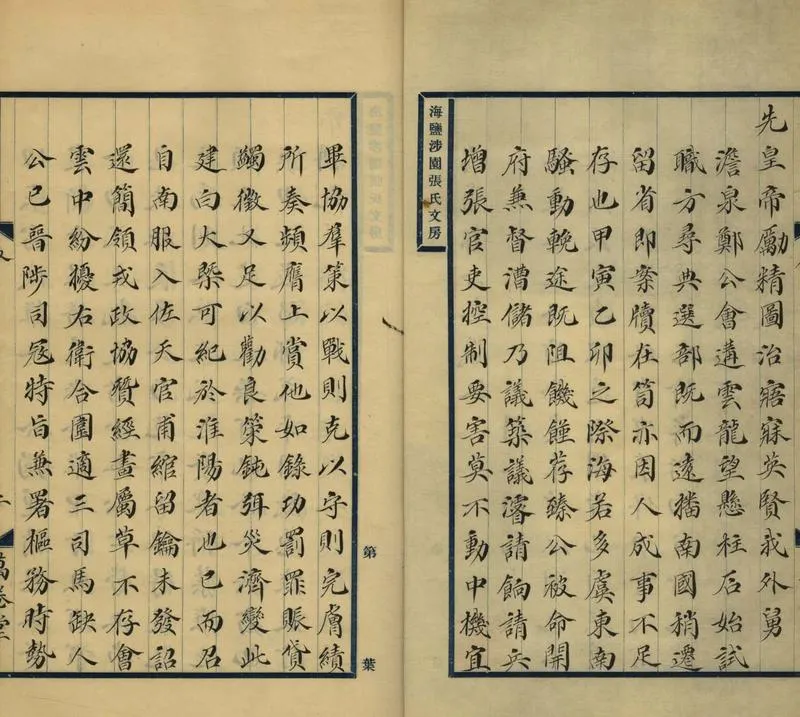 先皇帝勵精圖治寤寐英賢我外舅
澹泉鄭公會遘雲龍望懸柱后始試
職方尋典選部既而遠播南國稍遷
留省即案牘在笥亦因人成事不足
存也甲寅乙卯之際海若多虞東南
騷動輓途既阻饑饉荐臻公被命開
府兼督漕儲乃議築議濬請餉請兵
增張官吏控制要害莫不動中機宜
海鹽涉園張氏文房
畢協羣策以戰則克以守則完膚績
所奏頻膺上賞他如錄功罰罪賑貸
蠲徵又足以勸良策鈍弭災濟變此
建白大槩可紀於淮陽者也已而召
自南服入佐天官甫綰留鑰未發詔
還簡領戎政協贊經畫屬草不存會
雲中紛擾右衛合圍適三司馬缺人
公已晉陟司寇特旨兼署樞務時勢
第 葉
萬卷堂